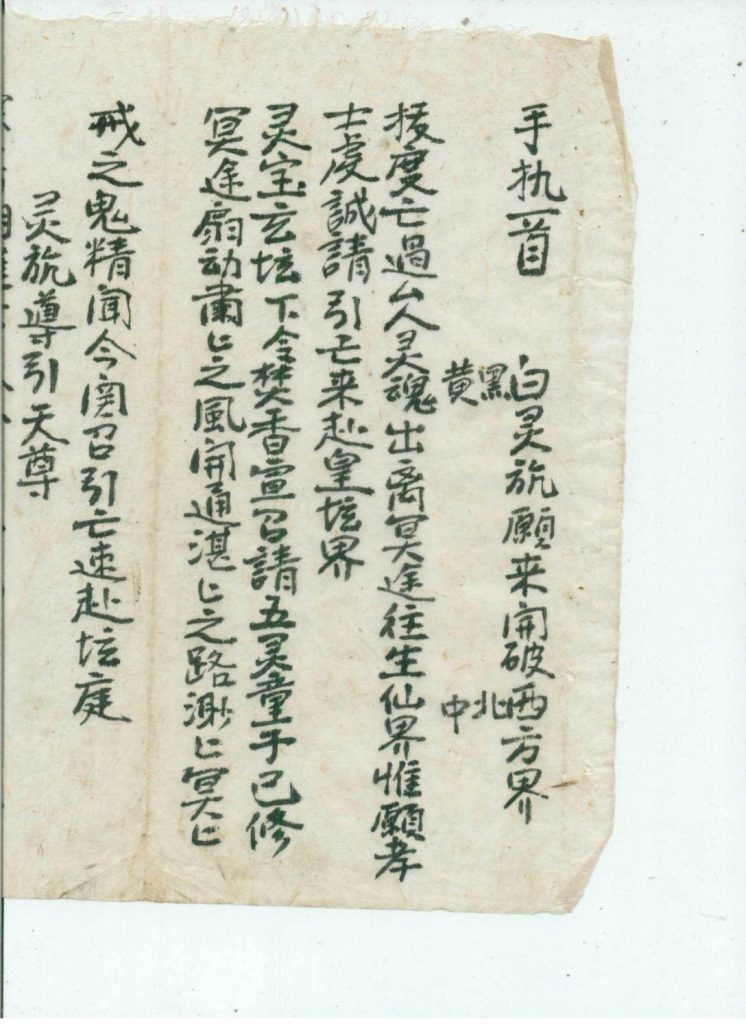 手执一首　白灵旂願来開破西方界
黑　北
黄　中
接度亡過厶人灵魂出离冥途往生仙界惟願孝
士虔誠請引亡来赴皇坛界
灵宝玄坛下令焚香宣召請五灵童子已修
冥途扇动肅〻之風開通湛〻之路渺〻冥〻
戒之鬼精闻今関召引亡速赴坛庭
灵旂導引天尊